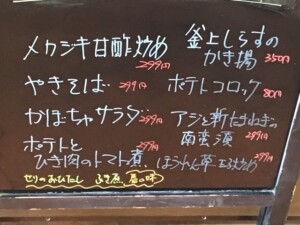 メカジキ甘酢炒め 299円
やきそば 299円
かぼちゃサラダ 299円
ポテトと
ひき肉のトマト煮 299円
せりのおひたし ふき煮 昼の味
釜上しらすの
かき揚 350円
ポテトコロッケ 80円
アジと新たまねぎの
南蛮漬 289円
ほうれん草 炒め 299円